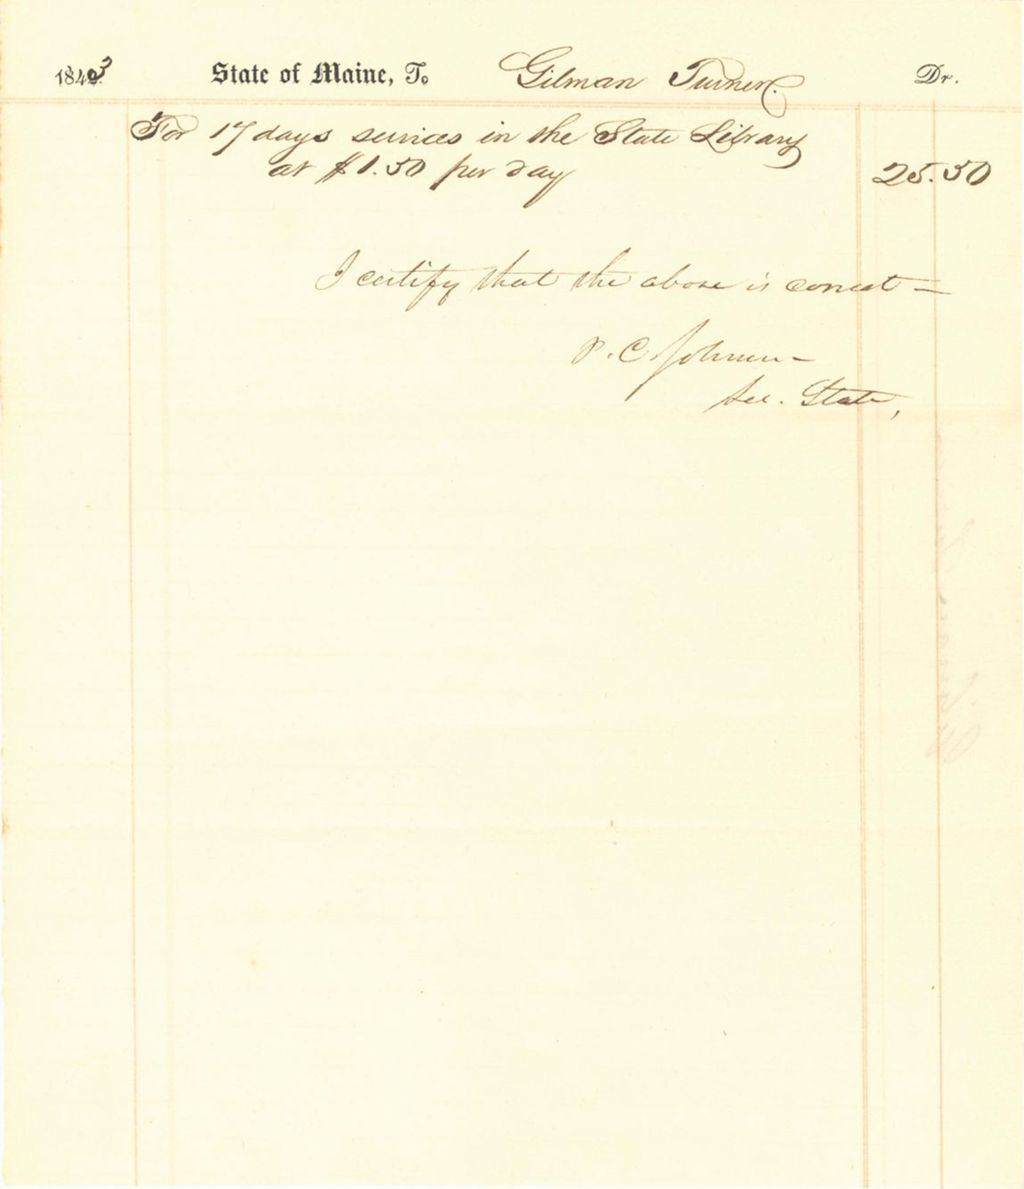 1843 State of Maine, To Gilman Turner. Dr.
For 17 days services in the State Library
at $1.50 per day 25.50
I certify that the above is correct –
P. C. Johnson –
Sec. State,